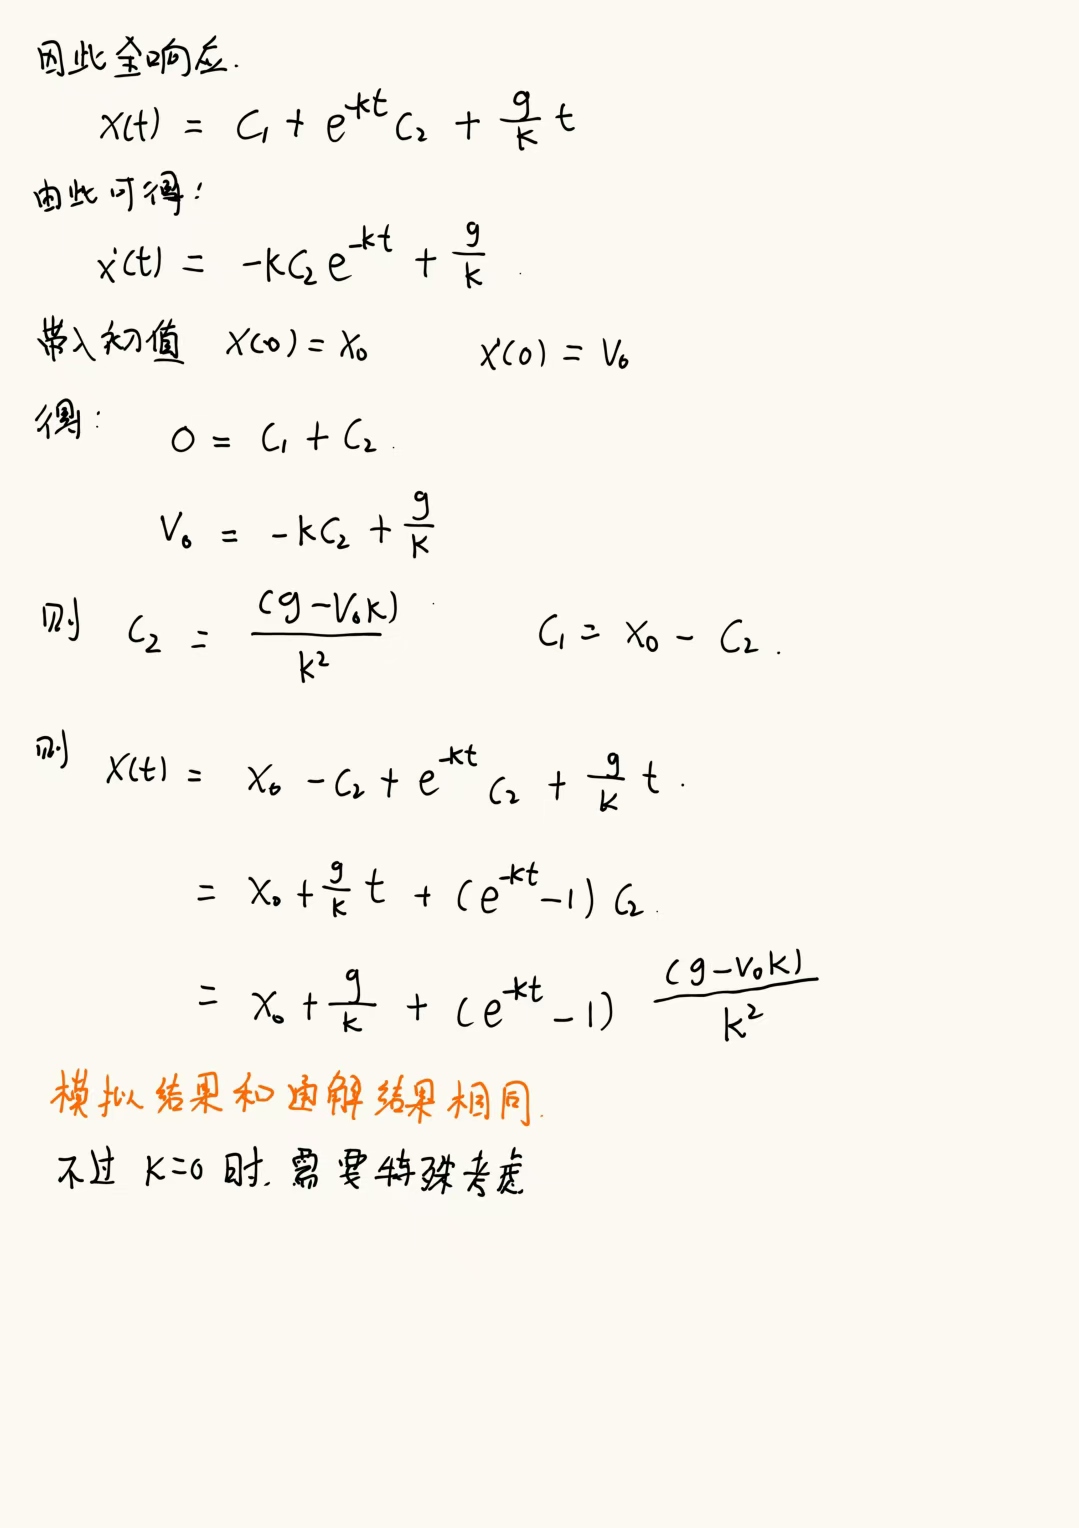 因此全响应.
x(t) = C₁ + e^{-kt} C₂ + \frac{g}{k} t
由此可得:
ẋ(t) = -kC₂ e^{-kt} + \frac{g}{k}
带入初值 x(0) = x₀ ẋ(0) = V₀
得: 0 = C₁ + C₂
V₀ = -kC₂ + \frac{g}{k}
则 C₂ = \frac{(g-V₀k)}{k²} C₁ = x₀ - C₂.
则 x(t) = x₀ - C₂ + e^{-kt} C₂ + \frac{g}{k} t.
= x₀ + \frac{g}{k} t + (e^{-kt} -1) C₂.
= x₀ + \frac{g}{k} + (e^{-kt} -1) \frac{(g-V₀k)}{k²}
模拟结果和通解结果相同.
不过 k=0 时. 需要特殊考虑